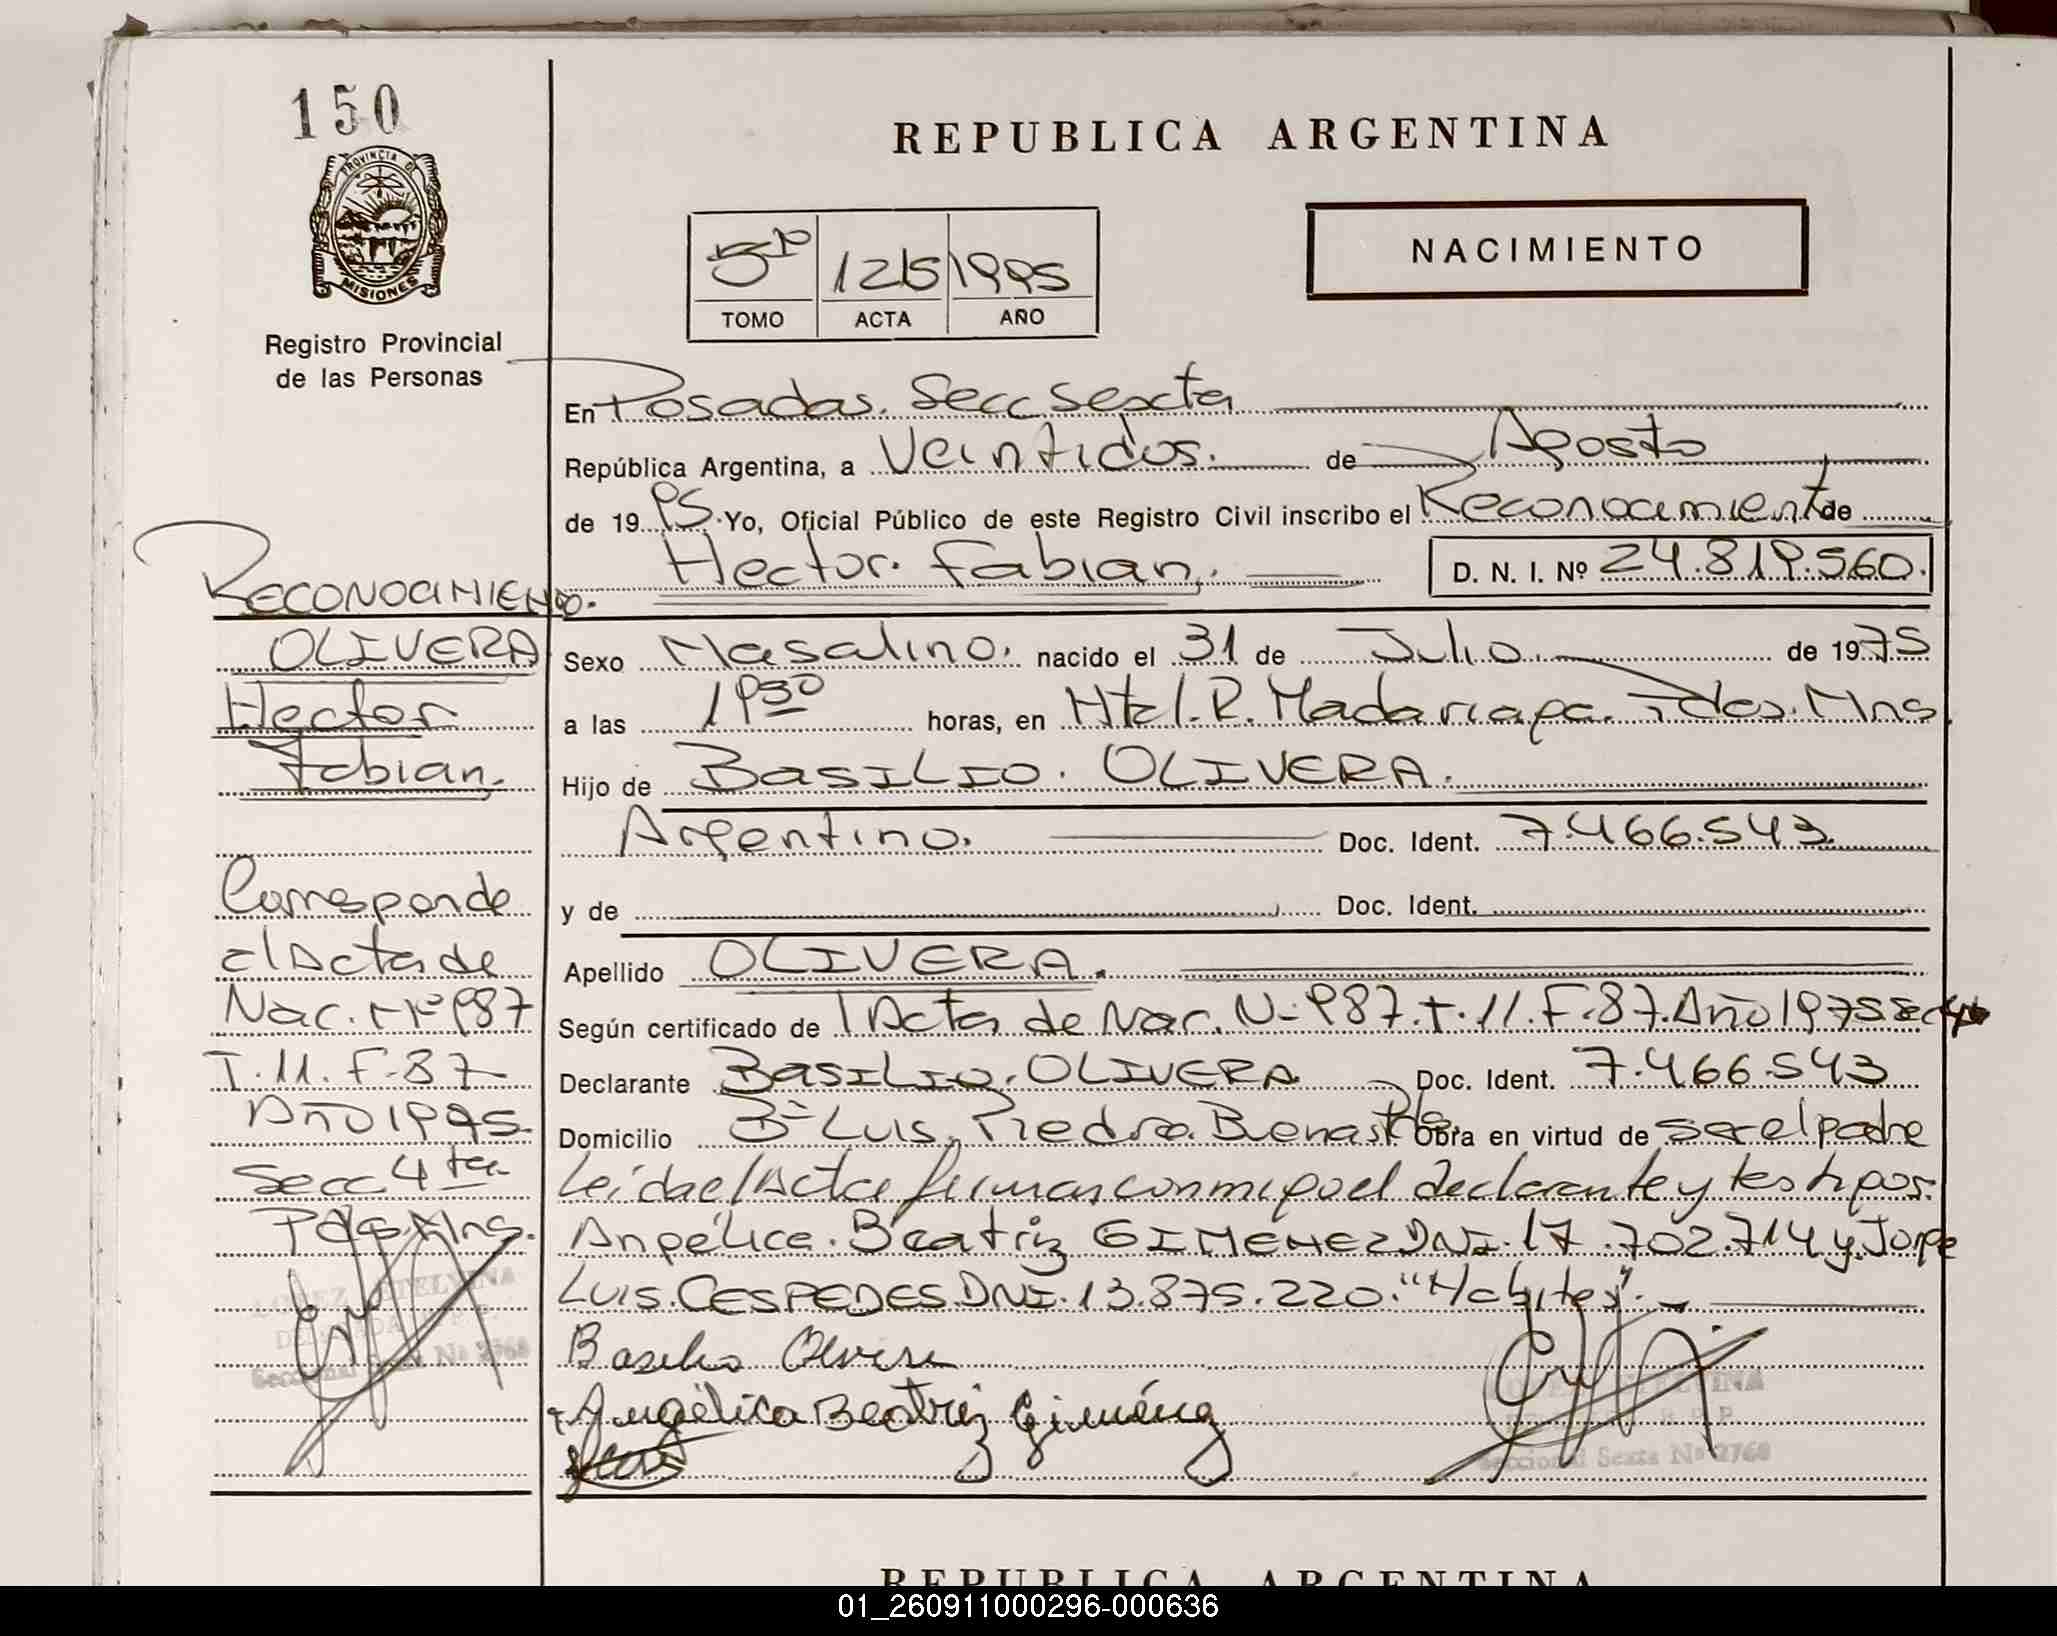 150
REPUBLICA ARGENTINA
PROVINCIA D
MISIONES
Registro Provincial
de las Personas
NACIMIENTO
5º 1215 1995
TOMO ACTA AÑO
En Posadas. Secc Sexta
República Argentina, a Veintidos. de Agosto
de 1995. Yo, Oficial Público de este Registro Civil inscribo el Reconocimiento de
Hector Fabian. D. N. I. Nº 24.819.560.
RECONOCIMIENTO.
OLIVERA
Hector
Fabian.
Corresponde
al Acta de
Nac. Nº 987
T. 11. F. 87
Año 1975.
Secc 4ta
Pdas. Mns.
LOPEZ ETELVINA
Seccional Sexta Nº 2768
Sexo Masculino. nacido el 31 de Julio. de 1975
a las 19³⁰ horas, en Htal. R. Madariaga. Pdas. Mns.
Hijo de BASILIO. OLIVERA.
Argentino. Doc. Ident. 7.466.543.
y de Doc. Ident.
Apellido OLIVERA.
Según certificado de 1 Acta de Nac. Nº 987. T. 11. F. 87. Año 1975 Secc 4ta
Declarante BASILIO. OLIVERA Doc. Ident. 7.466.543
Domicilio Bº Luis Piedra Buena Pdas. Obra en virtud de ser el padre
Leída el Acta firman conmigo el declarante y testigos:
Angélica. Beatriz GIMENEZ DNI. 17.702.714 y Jorge
Luis. CESPEDES. DNI. 13.875.220. "Habites".
Basilio Olivera
Angélica Beatriz Giménez
LOPEZ ETELVINA
R.P.P.
Seccional Sexta Nº 2768
REPUBLICA ARGENTINA
01_260911000296-000636